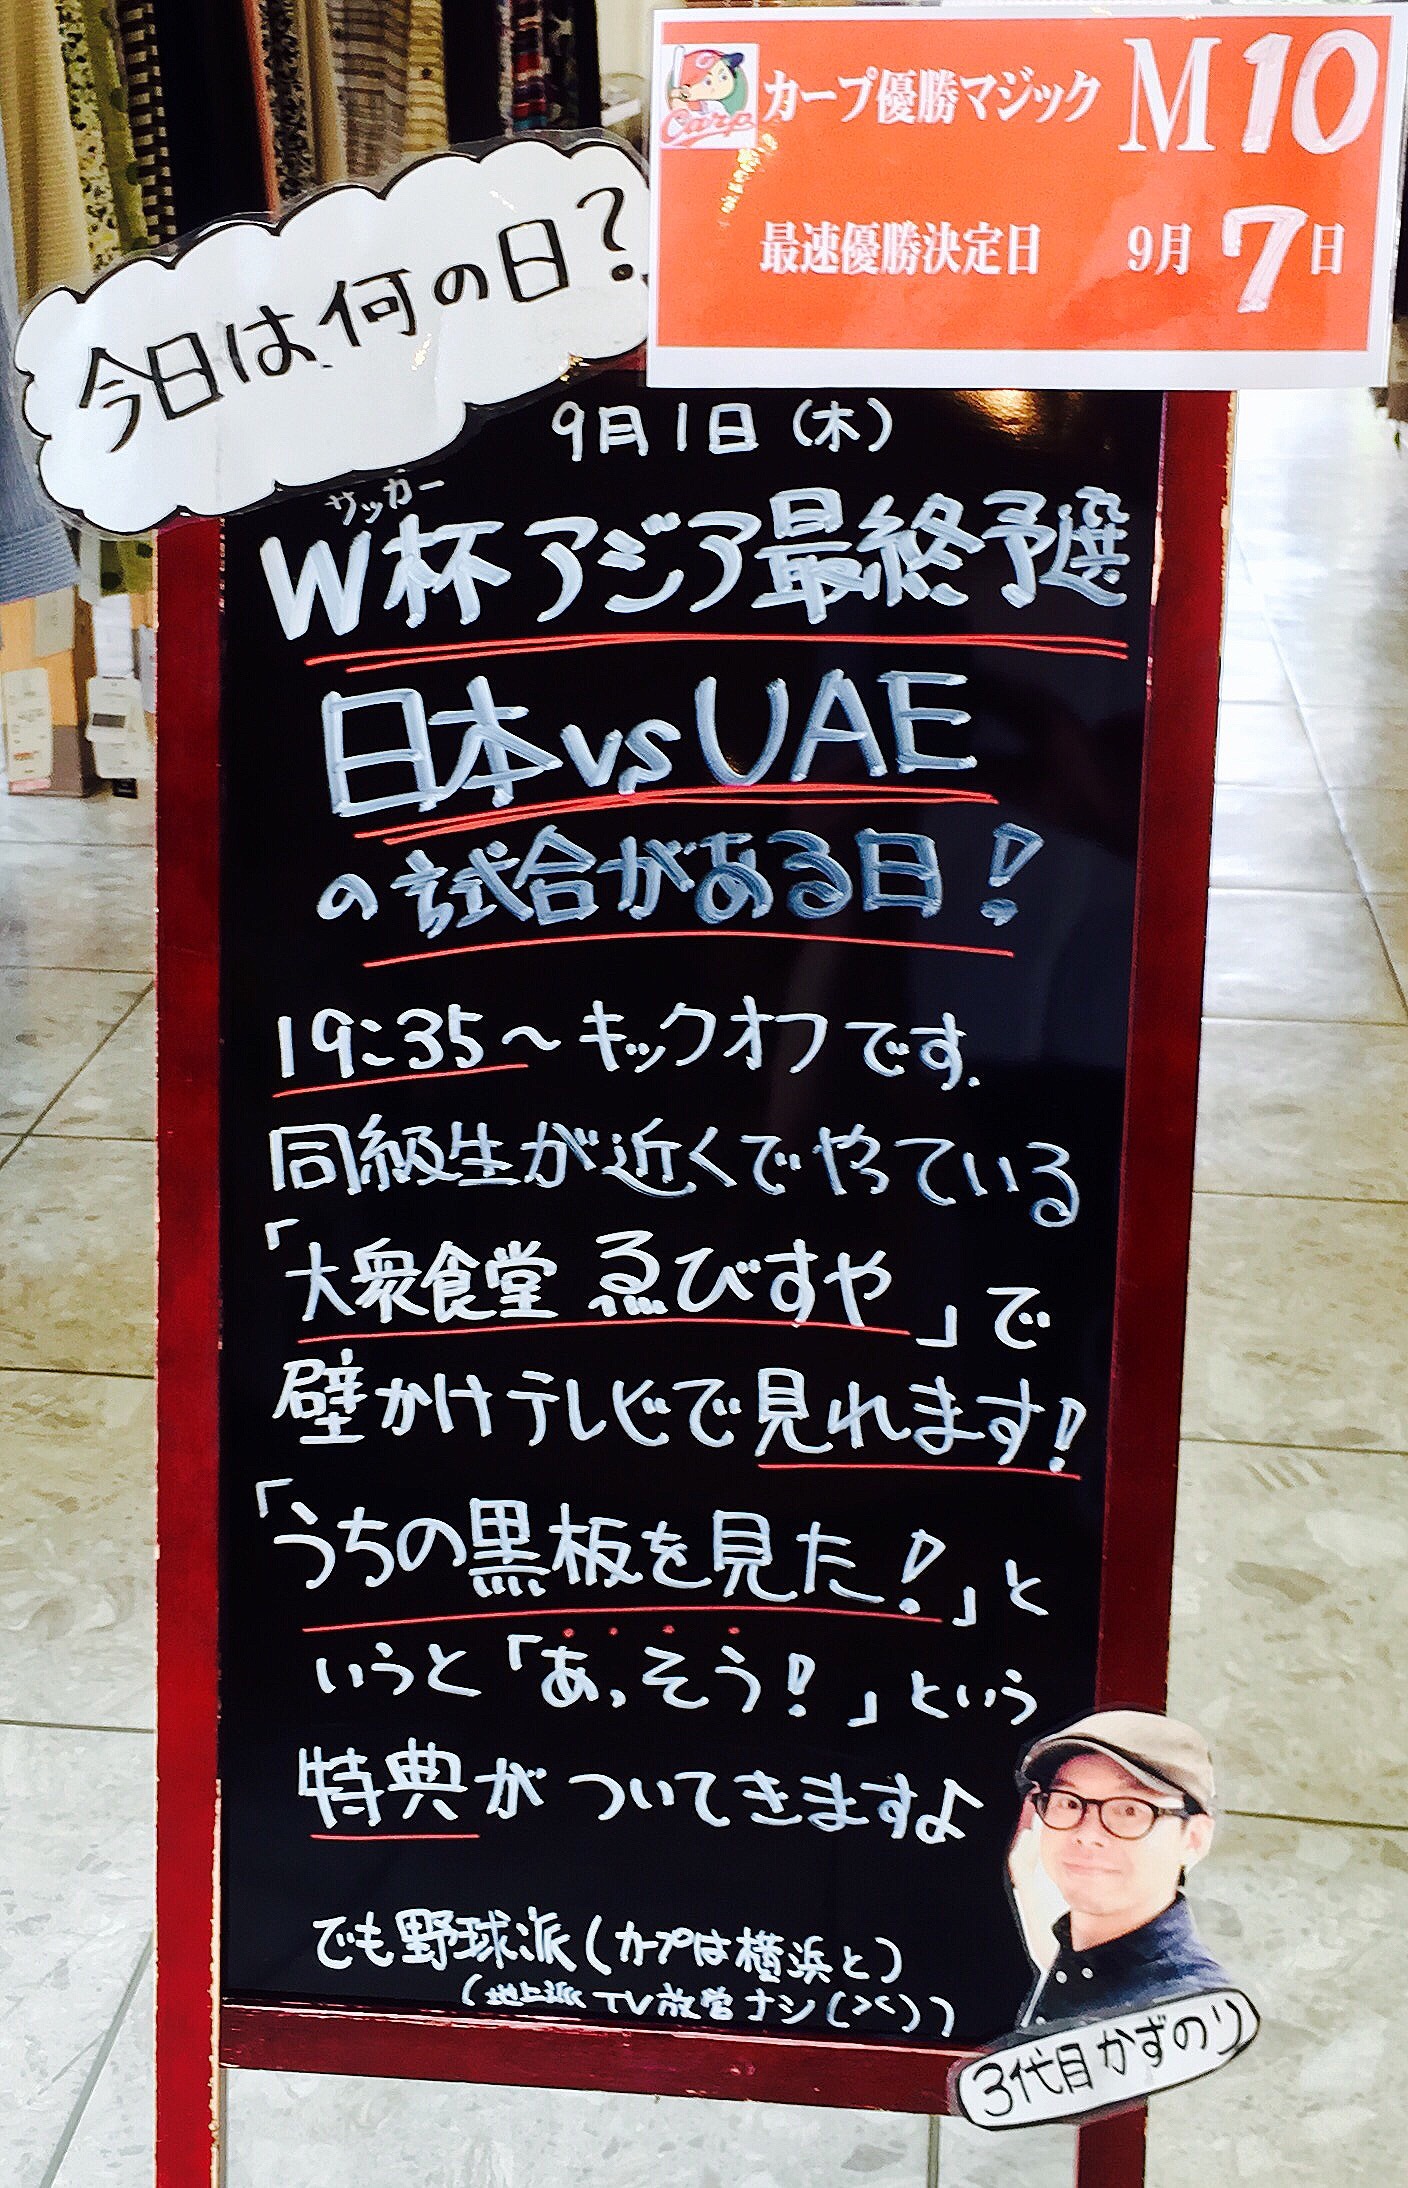 Carp
カープ優勝マジック M10
最速優勝決定日 9月7日
今日は何の日?
9月1日(木)
サッカー
W杯アジア最終予選
日本vsUAE
の試合がある日!
19:35~キックオフです.
同級生が近くでやっている
「大衆食堂 ゑびすや」で
壁かけテレビで見れます!
「うちの黒板を見た!」と
いうと「あっそう!」という
特典がついてきます♪
でも野球派(カープは横浜と)
(地上派TV放営ナシ(><))
3代目かずのり